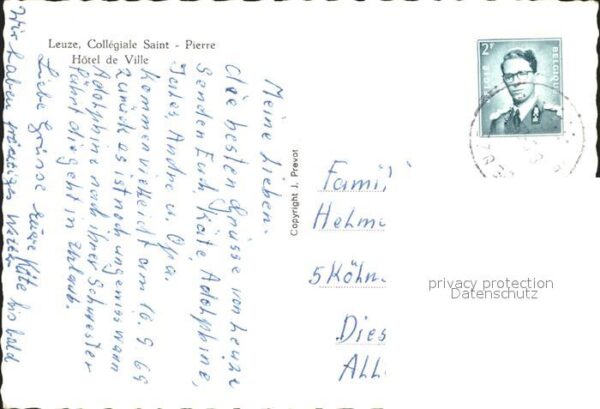 Leuze, Collégiale Saint - Pierre
Hôtel de Ville
Meine Lieben.
die besten Grüsse von Leuze
senden Euch, Käte, Adolphine,
Jules, Andre u. Opa.
kommen vielleicht am 16.9.69
zurück es ist noch ungewiss wann
Adolphine nach ihrer Schwester
fährt die geht in Urlaub.
Liebe Grüsse eure Käte bis bald
Wir haben prächtiges Wetter
Copyright J. Prevot
2F
BELGIQUE
BELGIË
Famil
Helm
5 Köln
Dies
All
privacy protection
Datenschutz